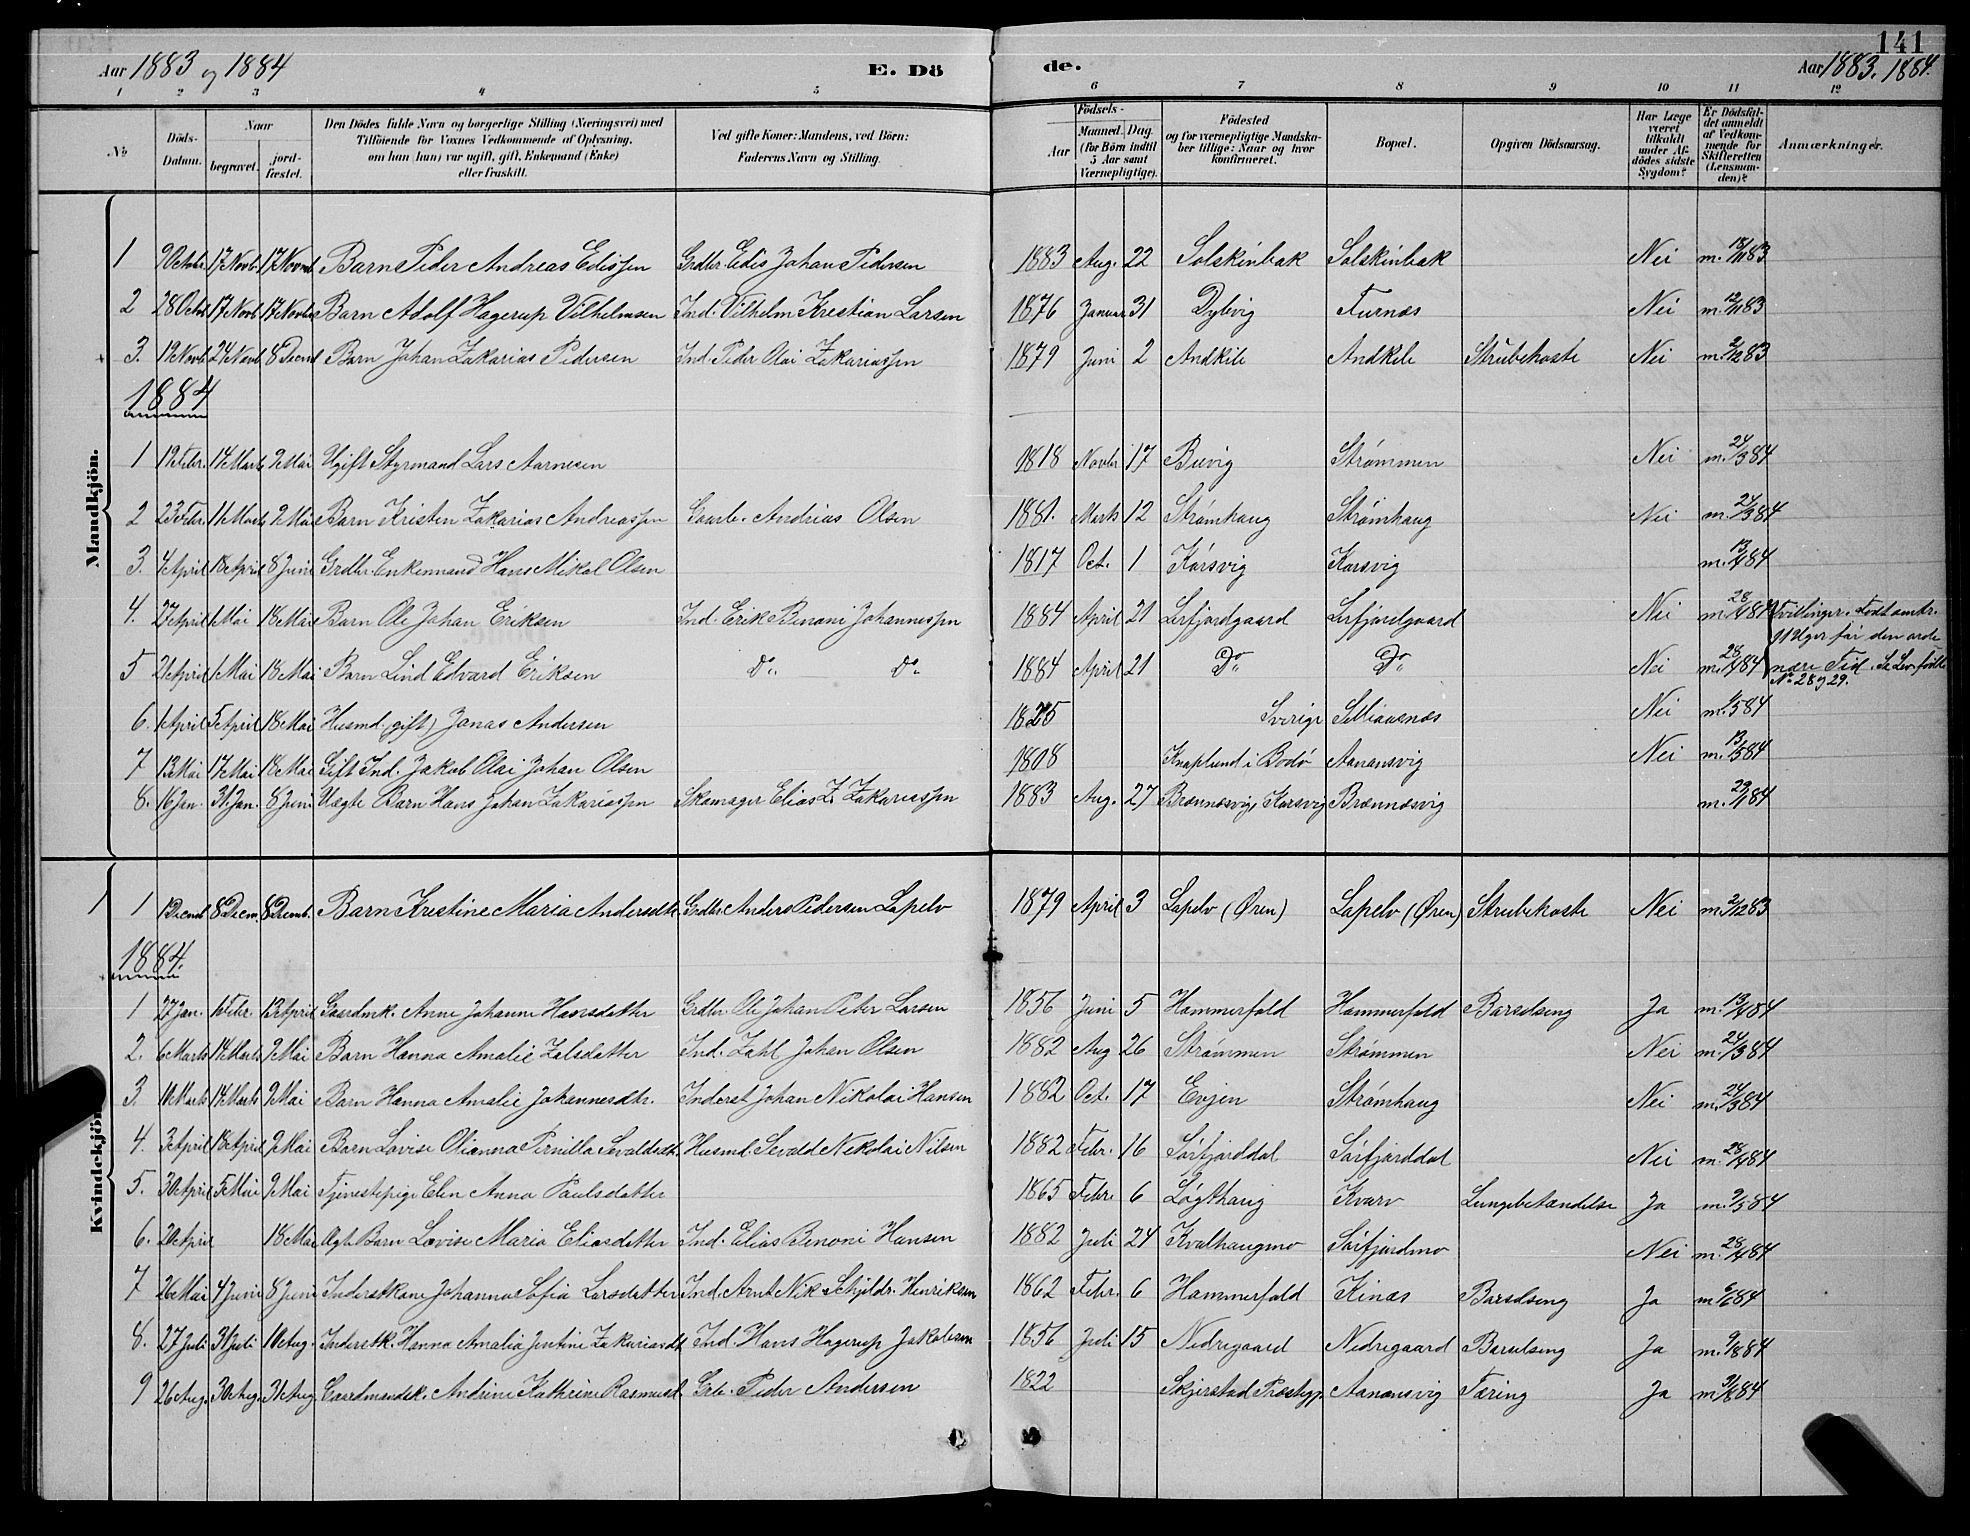 141
Aar 1883 og 1884 E. Dö de. Aar 1883. 1884.
1 2 3 4 5 6 7 8 9 10 11 12
No
Döds-
Datum.
Naar
begravet.
jord-
fæstet.
Den Dödes fulde Navn og borgerlige Stilling (Næringsvei) med
Tilföiende for Voxnes Vedkommende af Oplysning,
om han (hun) var ugift, gift, Enkemand (Enke)
eller fraskilt.
Ved gifte Koner: Mandens, ved Börn:
Faderens Navn og Stilling.
Födsels-
Aar
Maaned. Dag.
(for Börn indtil
5 Aar samt
Værnepligtige).
Födested
og for værnepligtige Mandska-
ber tillige: Naar og hvor
konfirmeret.
Bopæl.
Opgiven Dödsaarsag.
Har Læge
været
tilkaldt
under Af-
dödes sidste
Sygdom?
Er Dödsfal-
det anmeldt
af Vedkom-
mende for
Skifteretten
(Lensman-
den)?
Anmærkninger.
Mandkjön.
1 9 Octobr. 17 Novb. 17 Novbr Barn Peder Andreas Edissen Grdbr. Edis Johan Pedersen 1883 Aug. 22 Solskinbak Solskinbak Nei m. 18/11 83
2 28 Octob 17 Novb 17 Novbr Barn Adolf Hagerup Vilhelmsen Ind. Vilhelm Kristian Larsen 1876 Januar 31 Dybvig Furnæs Nei m. 12/11 83
3. 19 Novb. 24 Novb. 8 Decmb Barn Johan Zakarias Pedersen Ind. Peder Olai Zakariassen 1879 Juni 2 Andkile Andkile Strubehoste Nei m. 2/12 83
1884
1 19 Febr. 14 Marts 9 Mai Ugift Styrmand Lars Aarnesen 1818 Novbr 17 Buvig Strømmen Nei m. 24/3 84
2 23 Febr. 14 Marts 9 Mai Barn Kristen Zakarias Andreassen Gaarb. Andrias Olsen 1881. Marts 12 Strømhaug Strømhaug Nei m. 24/3 84
3. 4 April 18 April 8 Juni Grdbr. Enkemand Hans Mikal Olsen 1817 Oct. 1 Korsvig Korsvig m. 13/4 84
4. 27 April 1 Mai 18 Mai Barn Ole Johan Eriksen Ind. Erik Benoni Johannessen 1884 April 21 Lerfjordgaard Lerfjordgaard Nei m. 28/4 84 Tvillinger. Født omtr.
11 Uger før den orde
5 21 April 1 Mai 18 Mai Barn Lind Edvard Eriksen Do. Do. 1884 April 21 Do. Do. Nei m. 28/4 84 nære Tid. Se Lev. fødte
No 28 og 29.
6. 1 April 5 April 18 Mai Husmd. (gift) Jonas Andersen 1825 Sverige Nei m. 6/5 84
7 13 Mai 17 Mai 18 Mai Gift Ind. Jakob Olai Johan Olsen 1808 Knaplund i Bodø Aanansvig Nei m. 13/5 84
8. 16 Jan. 31 Jan. 8 Juni Uægte Barn Hans Johan Zakariassen Skomager Elias Z. Zakariassen 1883 Aug. 27 Brennesvig, Korsvig Brennesvig m. 29/1 84
Kvindekjön.
1 1 1 Decmb 8 Decm. 8 Decmb. Barn Kristine Maria Andersdtr. Grdbr. Anders Pedersen Lapelv 1879 April 3 Lapelv (Øren) Lapelv (Øren) Strubehoste Nei m. 2/12 83
1884.
1 27 Jan. 1 Febr. 13 April Gaardmk. Anne Johanne Hansdatter Grdbr. Ole Johan Peter Larsen 1856 Juni 5 Hammerfald Hammerfald Barselseng Ja m. 13/4 84
2. 6 Marts 14 Marts 9 Mai Barn Hanna Amalie Zalsdatter Ind. Zahl Johan Olsen 1882 Aug 26 Strømmen Strømmen Nei m. 24/3 84
3. 10 Marts 14 Marts 9 Mai Barn Hanna Amalie Johannesdtr. Inderst Johan Nikolai Hansen 1882 Oct. 17 Evjen Strømhaug Nei m. 24/3 84
4. 3 April 18 April 9 Mai Barn Lovise Olianna Pernilla Sevaldsdt. Husmd. Sevald Nikolai Nilsen 1882 Febr. 16 Sørfjorddal Sørfjorddal Nei m. 28/4 84
5. 30 April 5 Mai 9 Mai Tjenestepige Elen Anna Paulsdatter 1865 Febr. 6 Løgthaug Kvarv Lungebetændelse Ja m. 9/5 84
6. 20 April 18 Mai Ægte Barn Lovise Maria Eliasdatter Ind. Elias Benoni Hansen 1882 Juli 24 Kvalhaugmo Sørfjordmo Nei m. 28/4 84
7 26 Mai 4 Juni 8 Juni Inderstkone Johanna Sofia Larsdatter Ind. Arnt Nik. Schjeldr. Henriksen 1862 Febr. 6 Hammerfald Kinæs Barselseng Ja m. 6/6 84
8. 27 Juli 31 Juli 10 Aug. Inderstk. Hanna Amalia Jentine Zakariasdt Ind. Hans Hagerup Jakobsen 1856 Juli 15 Nedregaard Nedregaard Barselseng Ja m. 9/8 84
9 26 Aug. 30 Aug. 31 Aug. Gaardmandsk. Andrine Kathrine Rasmusd. Grb. Peder Andersen 1822 Skjerstad Præstegj. Aanansvig Tæring Ja m. 31/8 84